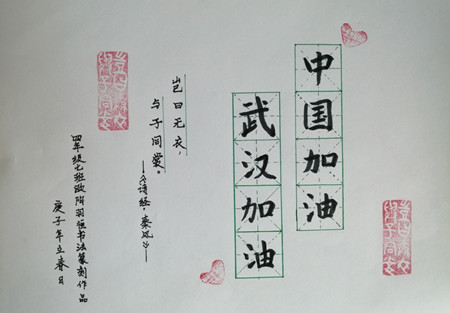 中国加油
武汉加油
岂曰无衣，
与子同裳。
——《诗经·秦风》——
四年级七班欧阳羽恒书法篆刻作品
庚子年立春日